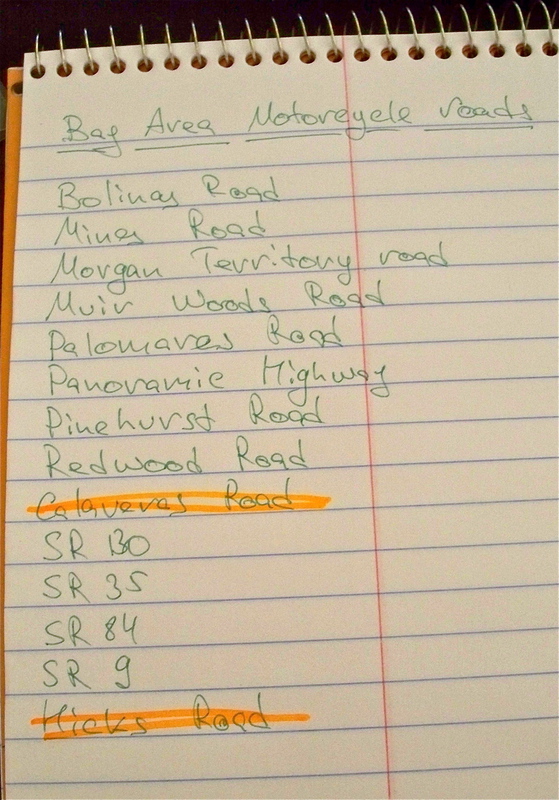 Bay Area Motorcycle roads
Bolinas Road
Mines Road
Morgan Territory road
Muir Woods Road
Palomares Road
Panoramic Highway
Pinehurst Road
Redwood Road
Calaveras Road
SR 130
SR 35
SR 84
SR 9
Hicks Road